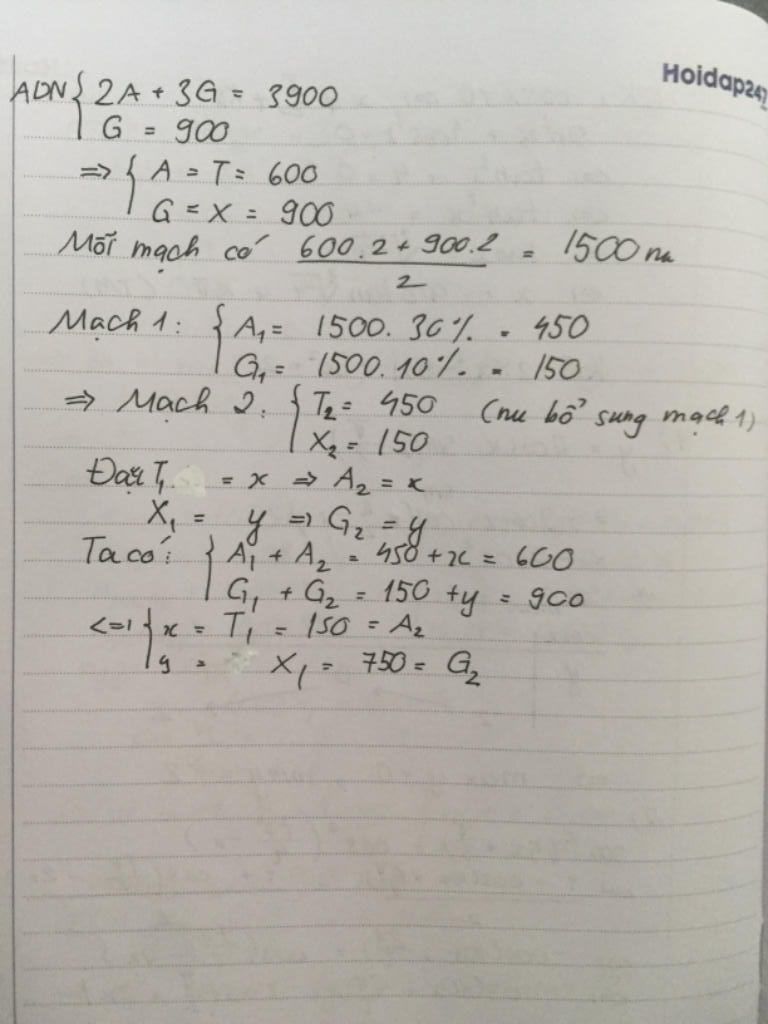 Hoidap247
ADN { 2A + 3G = 3900
G = 900
=> { A = T = 600
G = X = 900
Mỗi mạch có 600.2 + 900.2 / 2 = 1500 nu
Mạch 1: { A₁ = 1500. 30% = 450
G₁ = 1500. 10% = 150
=> Mạch 2: { T₂ = 450 (nu bổ sung mạch 1)
X₂ = 150
Đặt T₁ = x => A₂ = x
X₁ = y => G₂ = y
Ta có: { A₁ + A₂ = 450 + x = 600
G₁ + G₂ = 150 + y = 900
<=> { x = T₁ = 150 = A₂
y = X₁ = 750 = G₂